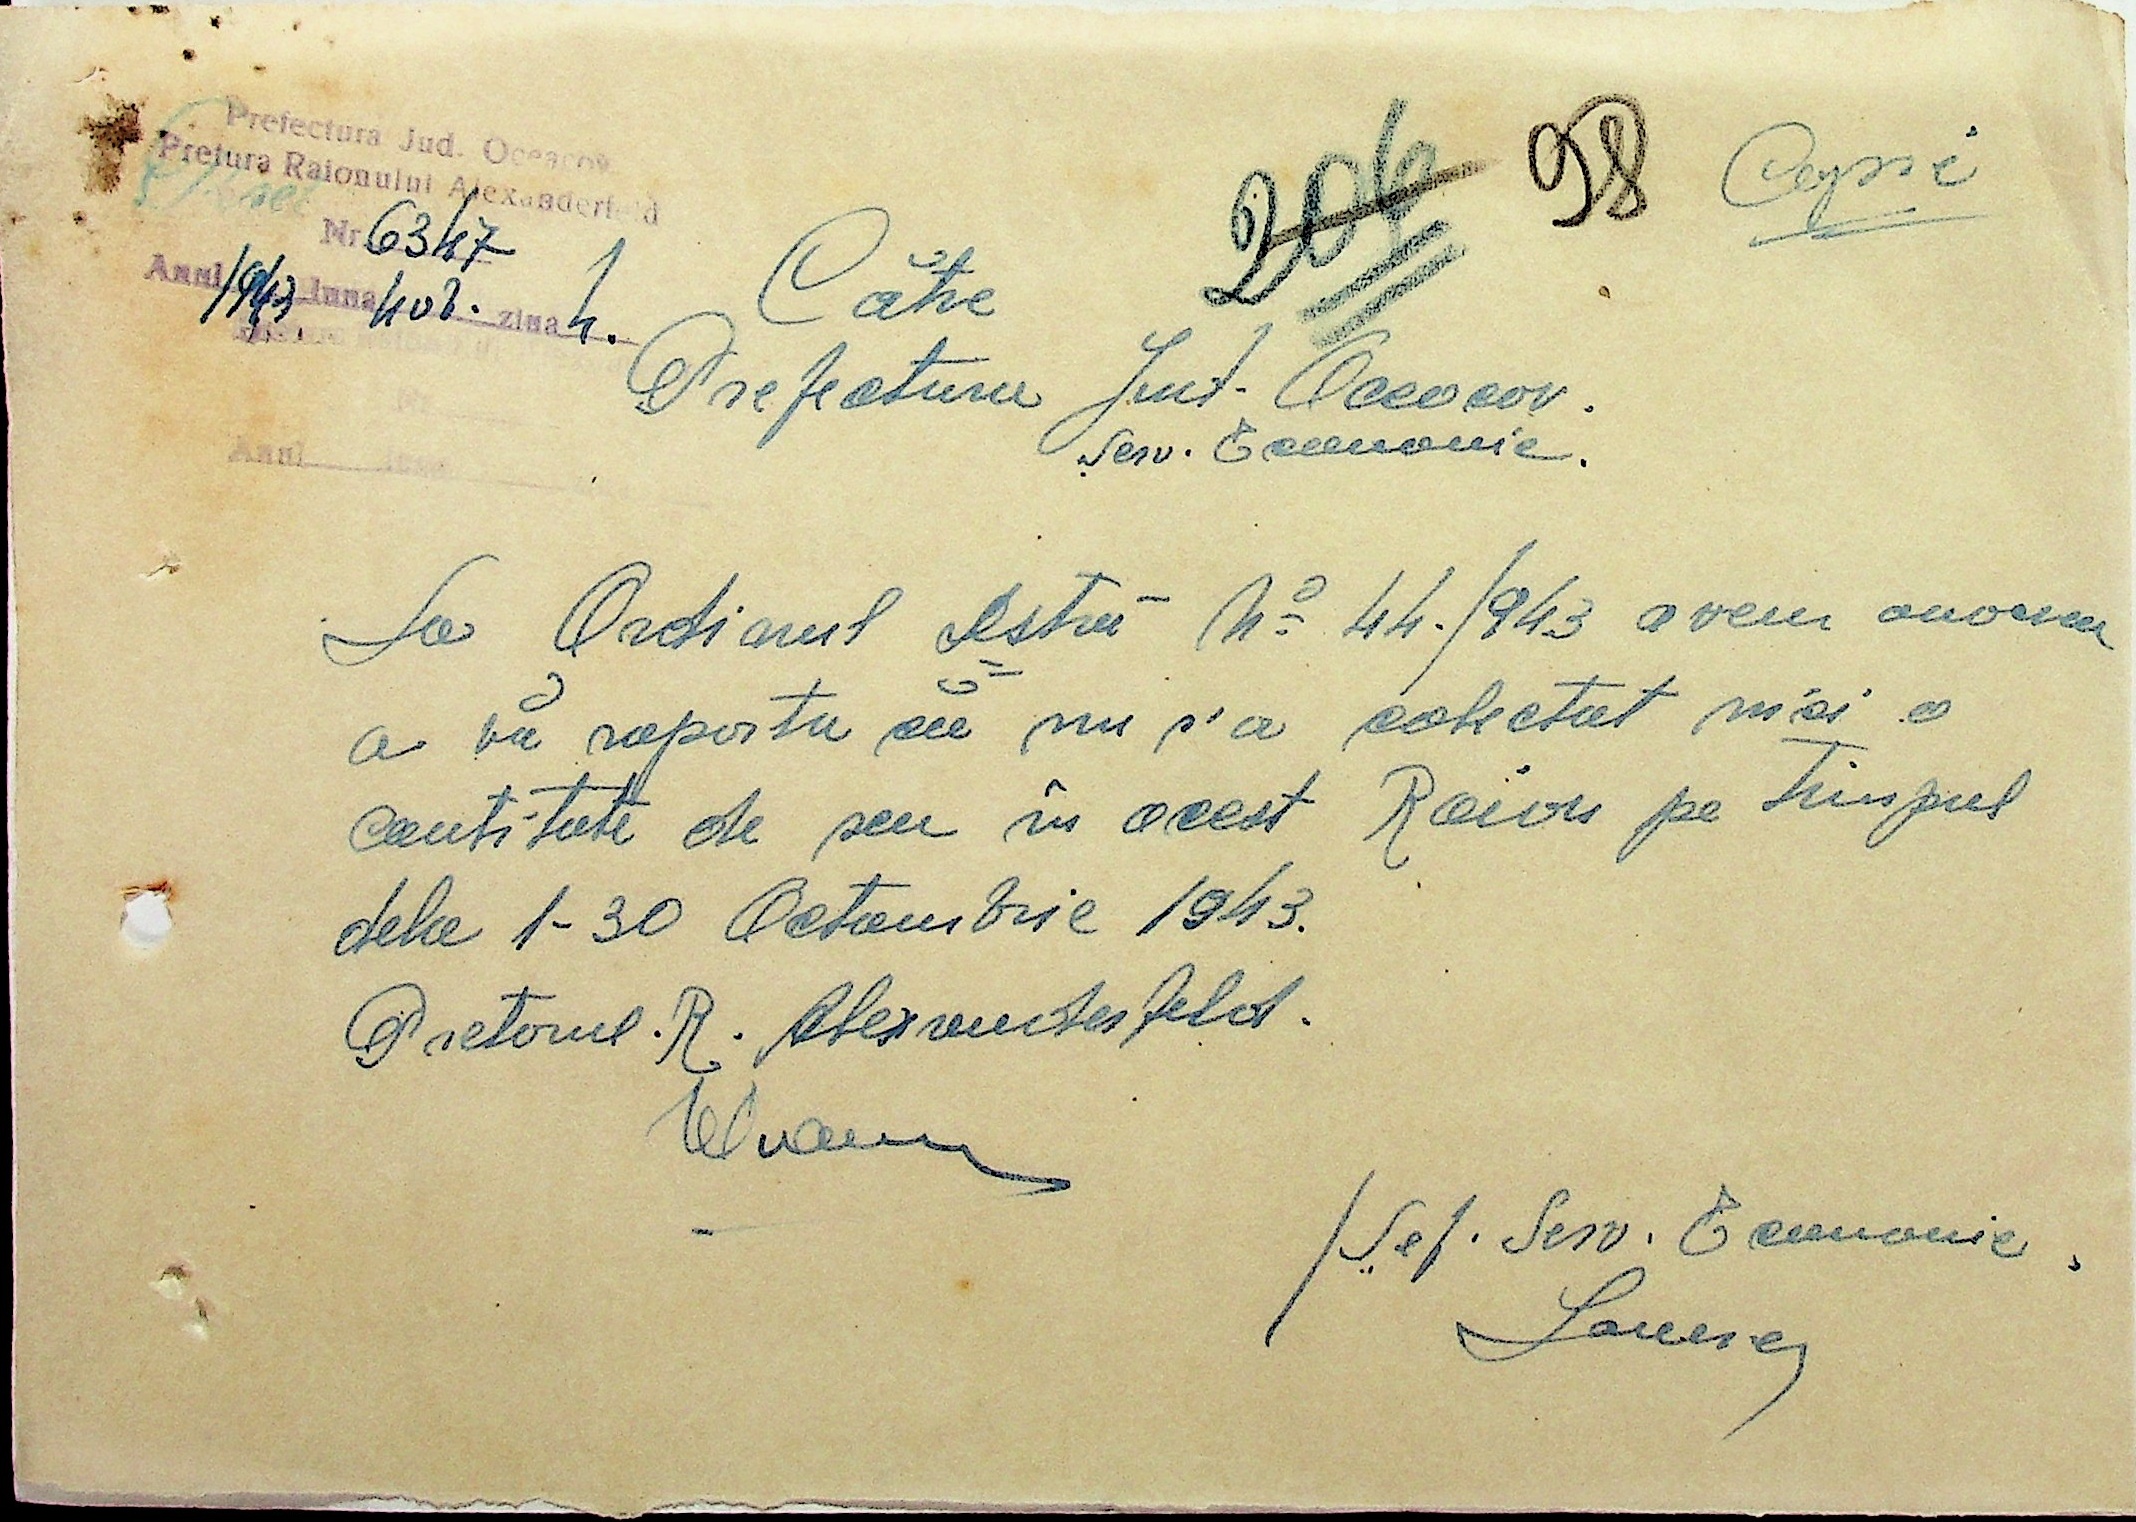 Prefectura Jud. Oceacov
Pretura Raionului Alexanderfeld
Nr. 6347
Anul 1943 luna Nov. ziua 4.
Anul
206 98
Către
Prefectura Jud. Oceacov.
Serv. Economic.
La Ordinul Dstră No 44./943 avem onoarea
a vă raporta că nu s'a colectat nici o
cantitate de seu în acest Raion pe timpul
dela 1-30 Octombrie 1943.
Pretorul. R. Alexanderfeld.
/Șef. Serv. Economic.